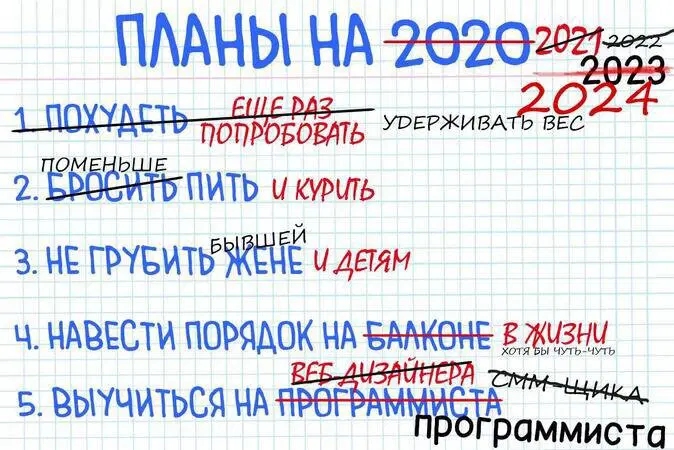 ПЛАНЫ НА 2020 2021 2022
2023
2024
1. ПОХУДЕТЬ ЕЩЕ РАЗ
ПОПРОБОВАТЬ УДЕРЖИВАТЬ ВЕС
ПОМЕНЬШЕ
2. БРОСИТЬ ПИТЬ И КУРИТЬ
БЫВШЕЙ
3. НЕ ГРУБИТЬ ЖЕНЕ И ДЕТЯМ
4. НАВЕСТИ ПОРЯДОК НА БАЛКОНЕ В ЖИЗНИ
ХОТЯ БЫ ЧУТЬ-ЧУТЬ
ВЕБ ДИЗАЙНЕРА СММ-ЩИКА
5. ВЫУЧИТЬСЯ НА ПРОГРАММИСТА
программиста